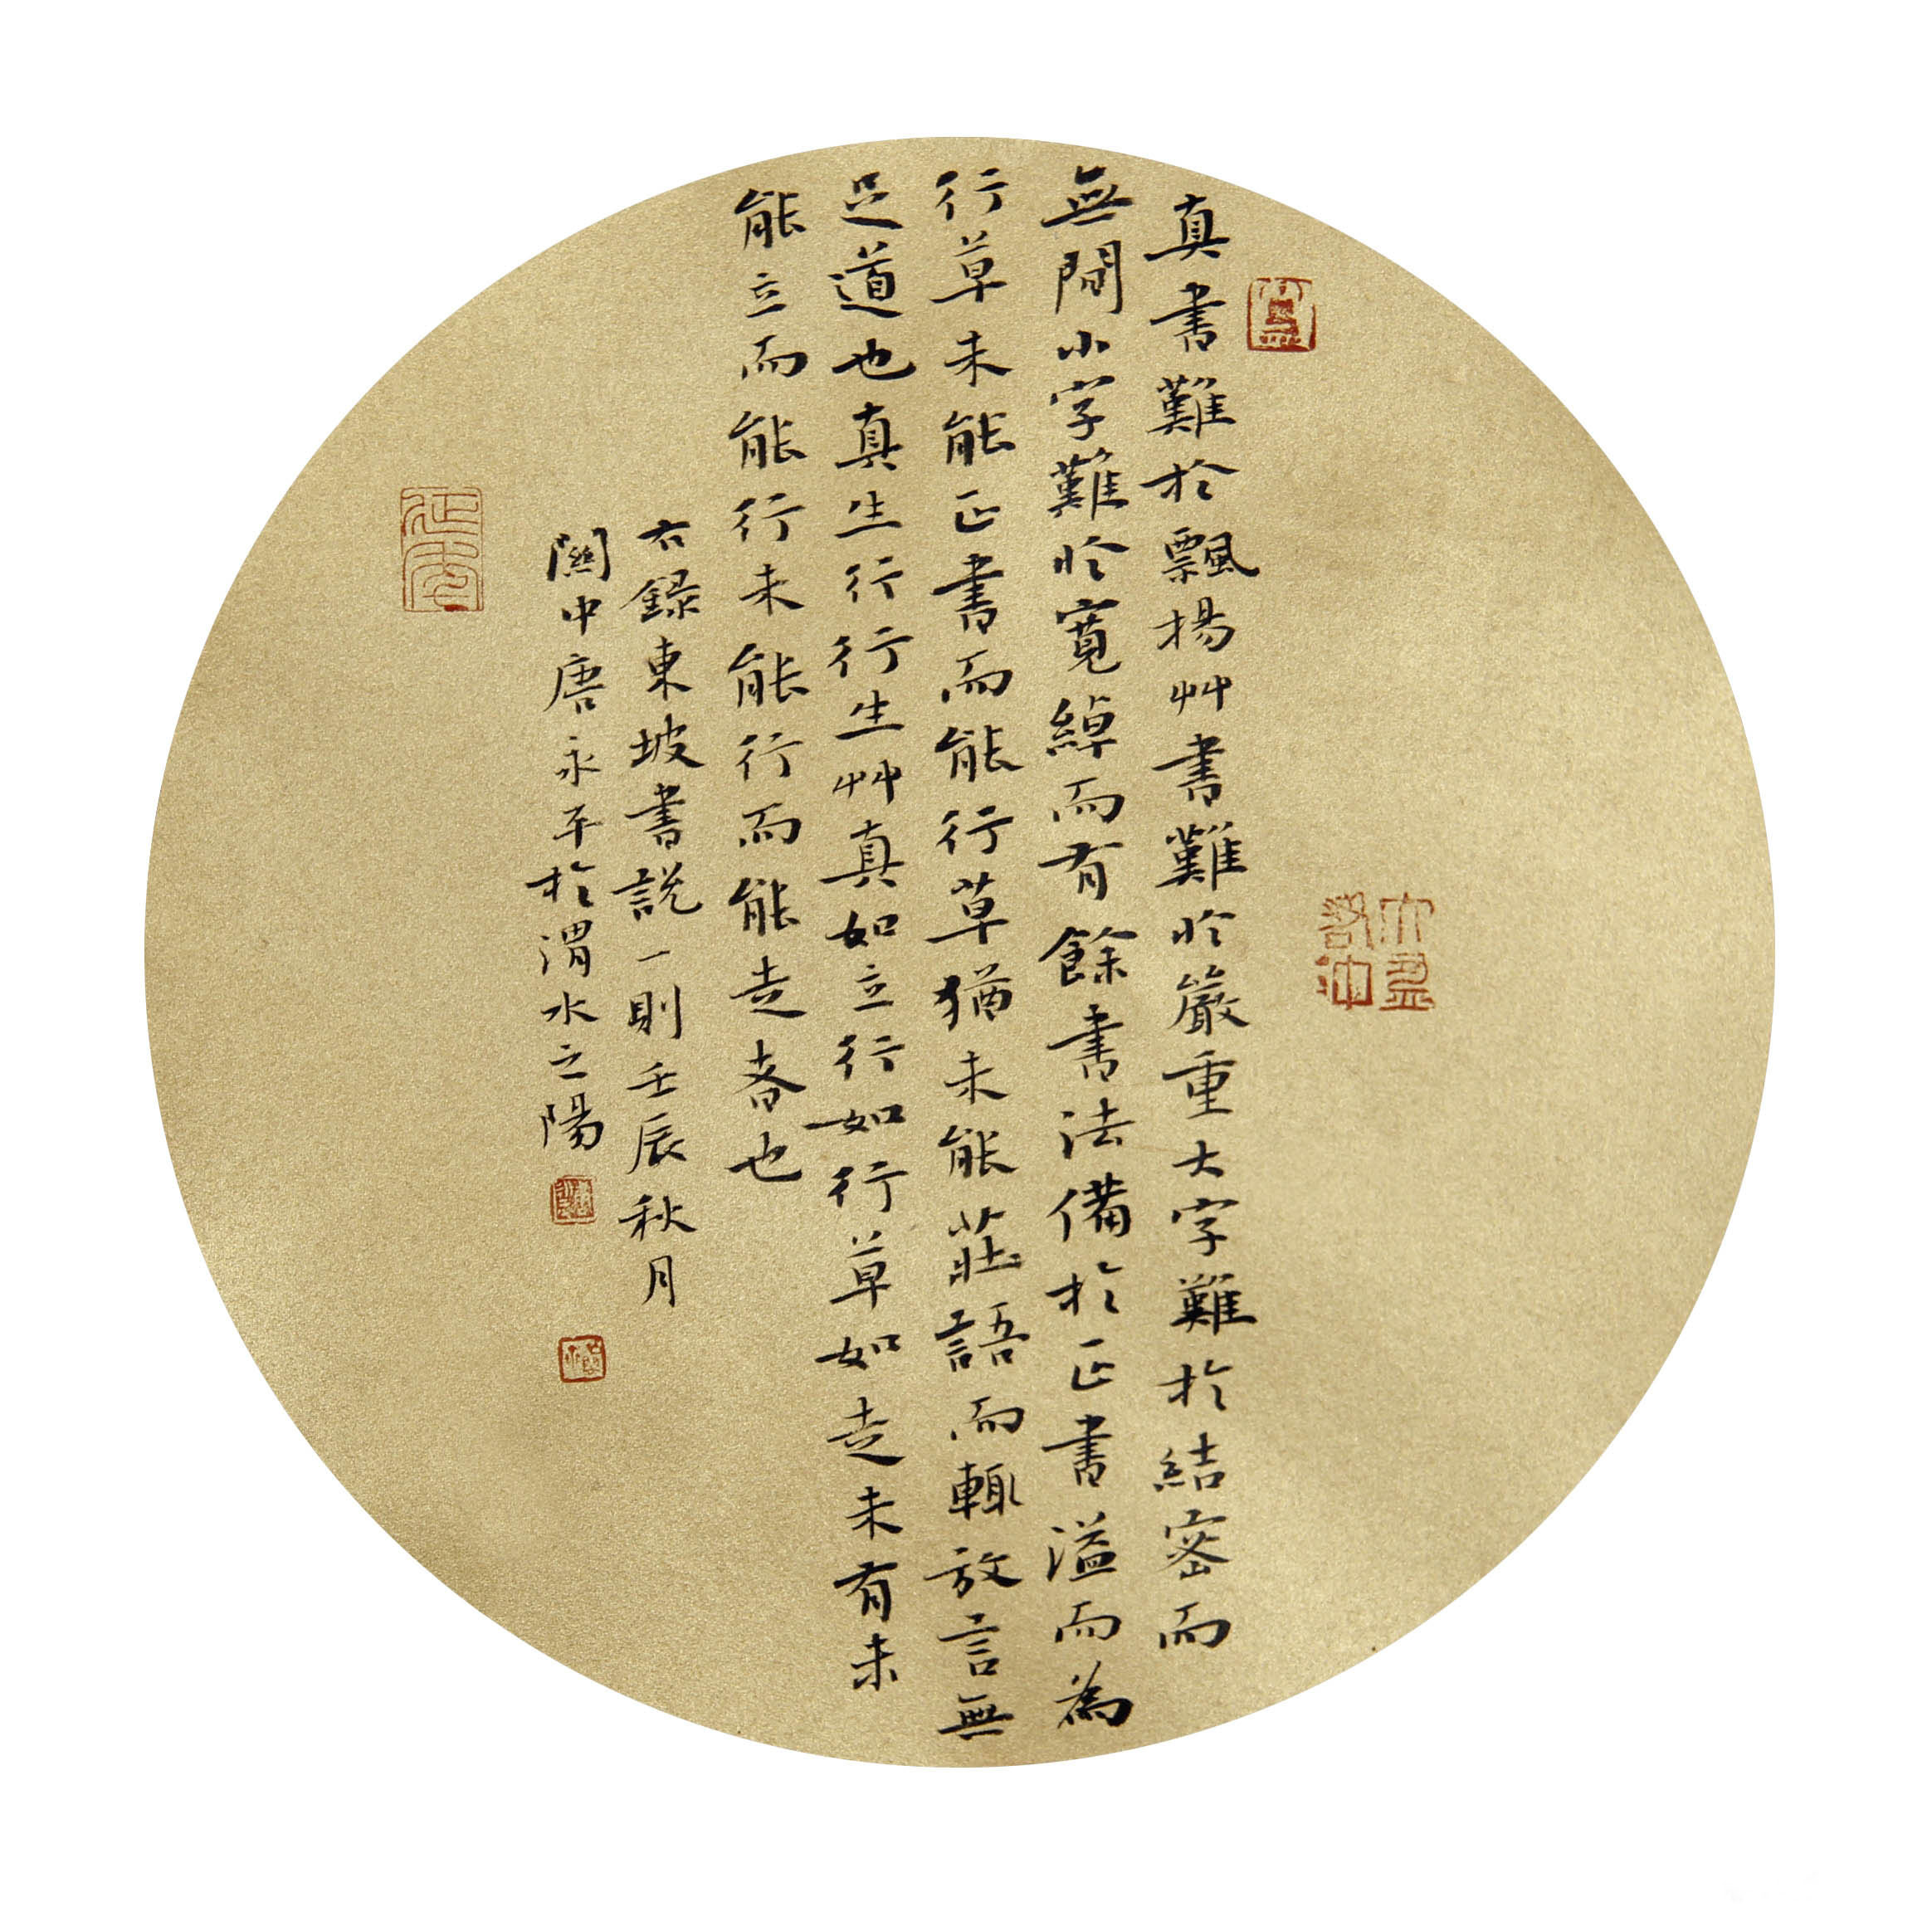 真書難於飄揚艸書難於嚴重大字難於結密而
無間小字難於寬綽而有餘書法備於正書溢而為
行草未能正書而能行草猶未能莊語而輒放言無
足道也真生行行生艸真如立行如行草如走未有未
能立而能行未能行而能走者也
右録東坡書説一則壬辰秋月
關中唐永平於渭水之陽
大盈若沖